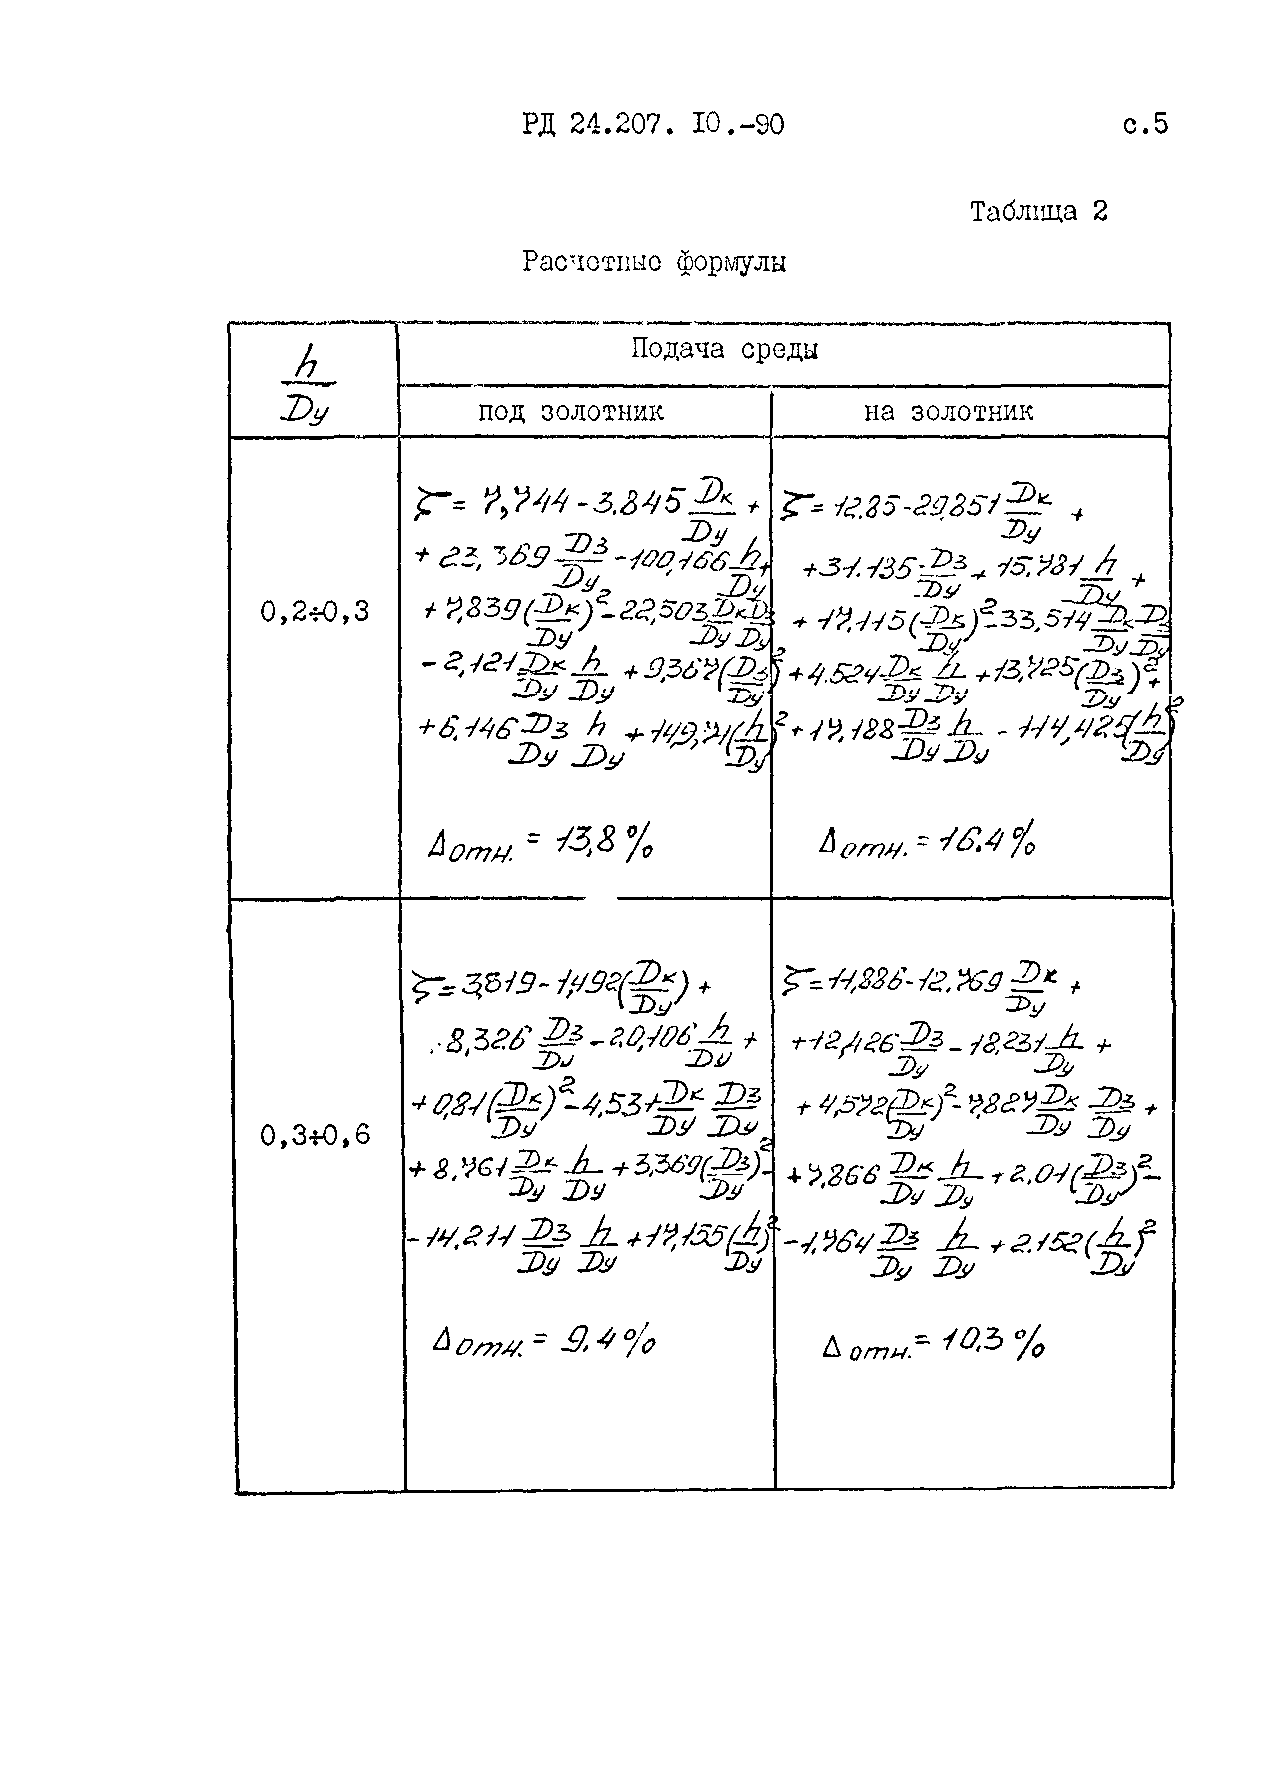 РД 24.207. 10.-90 с.5
Таблица 2
Расчетные формулы
h/Dу
Подача среды
под золотник на золотник
0,2÷0,3
ζ = 7,744 - 3.845 Dк/Dу +
+ 23,369 Dз/Dу - 100,166 h/Dу +
+ 7,839 (Dк/Dу)² - 22,503 Dк/Dу Dз/Dу -
- 2,121 Dк/Dу h/Dу + 9,367 (Dз/Dу)²
+ 6.146 Dз/Dу h/Dу + 149,71 (h/Dу)²
Δотн. = 13,8 %
ζ = 12.85 - 29.851 Dк/Dу +
+ 31.135 Dз/Dу + 15.781 h/Dу +
+ 17.115 (Dк/Dу)² - 33,514 Dк/Dу Dз/Dу
+ 4.524 Dк/Dу h/Dу + 13,725 (Dз/Dу)² +
+ 17.188 Dз/Dу h/Dу - 114,425 (h/Dу)²
Δотн. = 16.4 %
0,3÷0,6
ζ = 3,819 - 1,492 (Dк/Dу) +
8,326 Dз/Dу - 20,106 h/Dу +
+ 0,81 (Dк/Dу)² - 4,531 Dк/Dу Dз/Dу
+ 8,761 Dк/Dу h/Dу + 3,369 (Dз/Dу)² -
- 14.211 Dз/Dу h/Dу + 17,155 (h/Dу)²
Δотн. = 9.4 %
ζ = 11,886 - 12.769 Dк/Dу +
+ 12,126 Dз/Dу - 18,231 h/Dу +
+ 4,572 (Dк/Dу)² - 7,827 Dк/Dу Dз/Dу +
+ 7,866 Dк/Dу h/Dу + 2.01 (Dз/Dу)² -
- 1.764 Dз/Dу h/Dу + 2.152 (h/Dу)²
Δотн. = 10,3 %